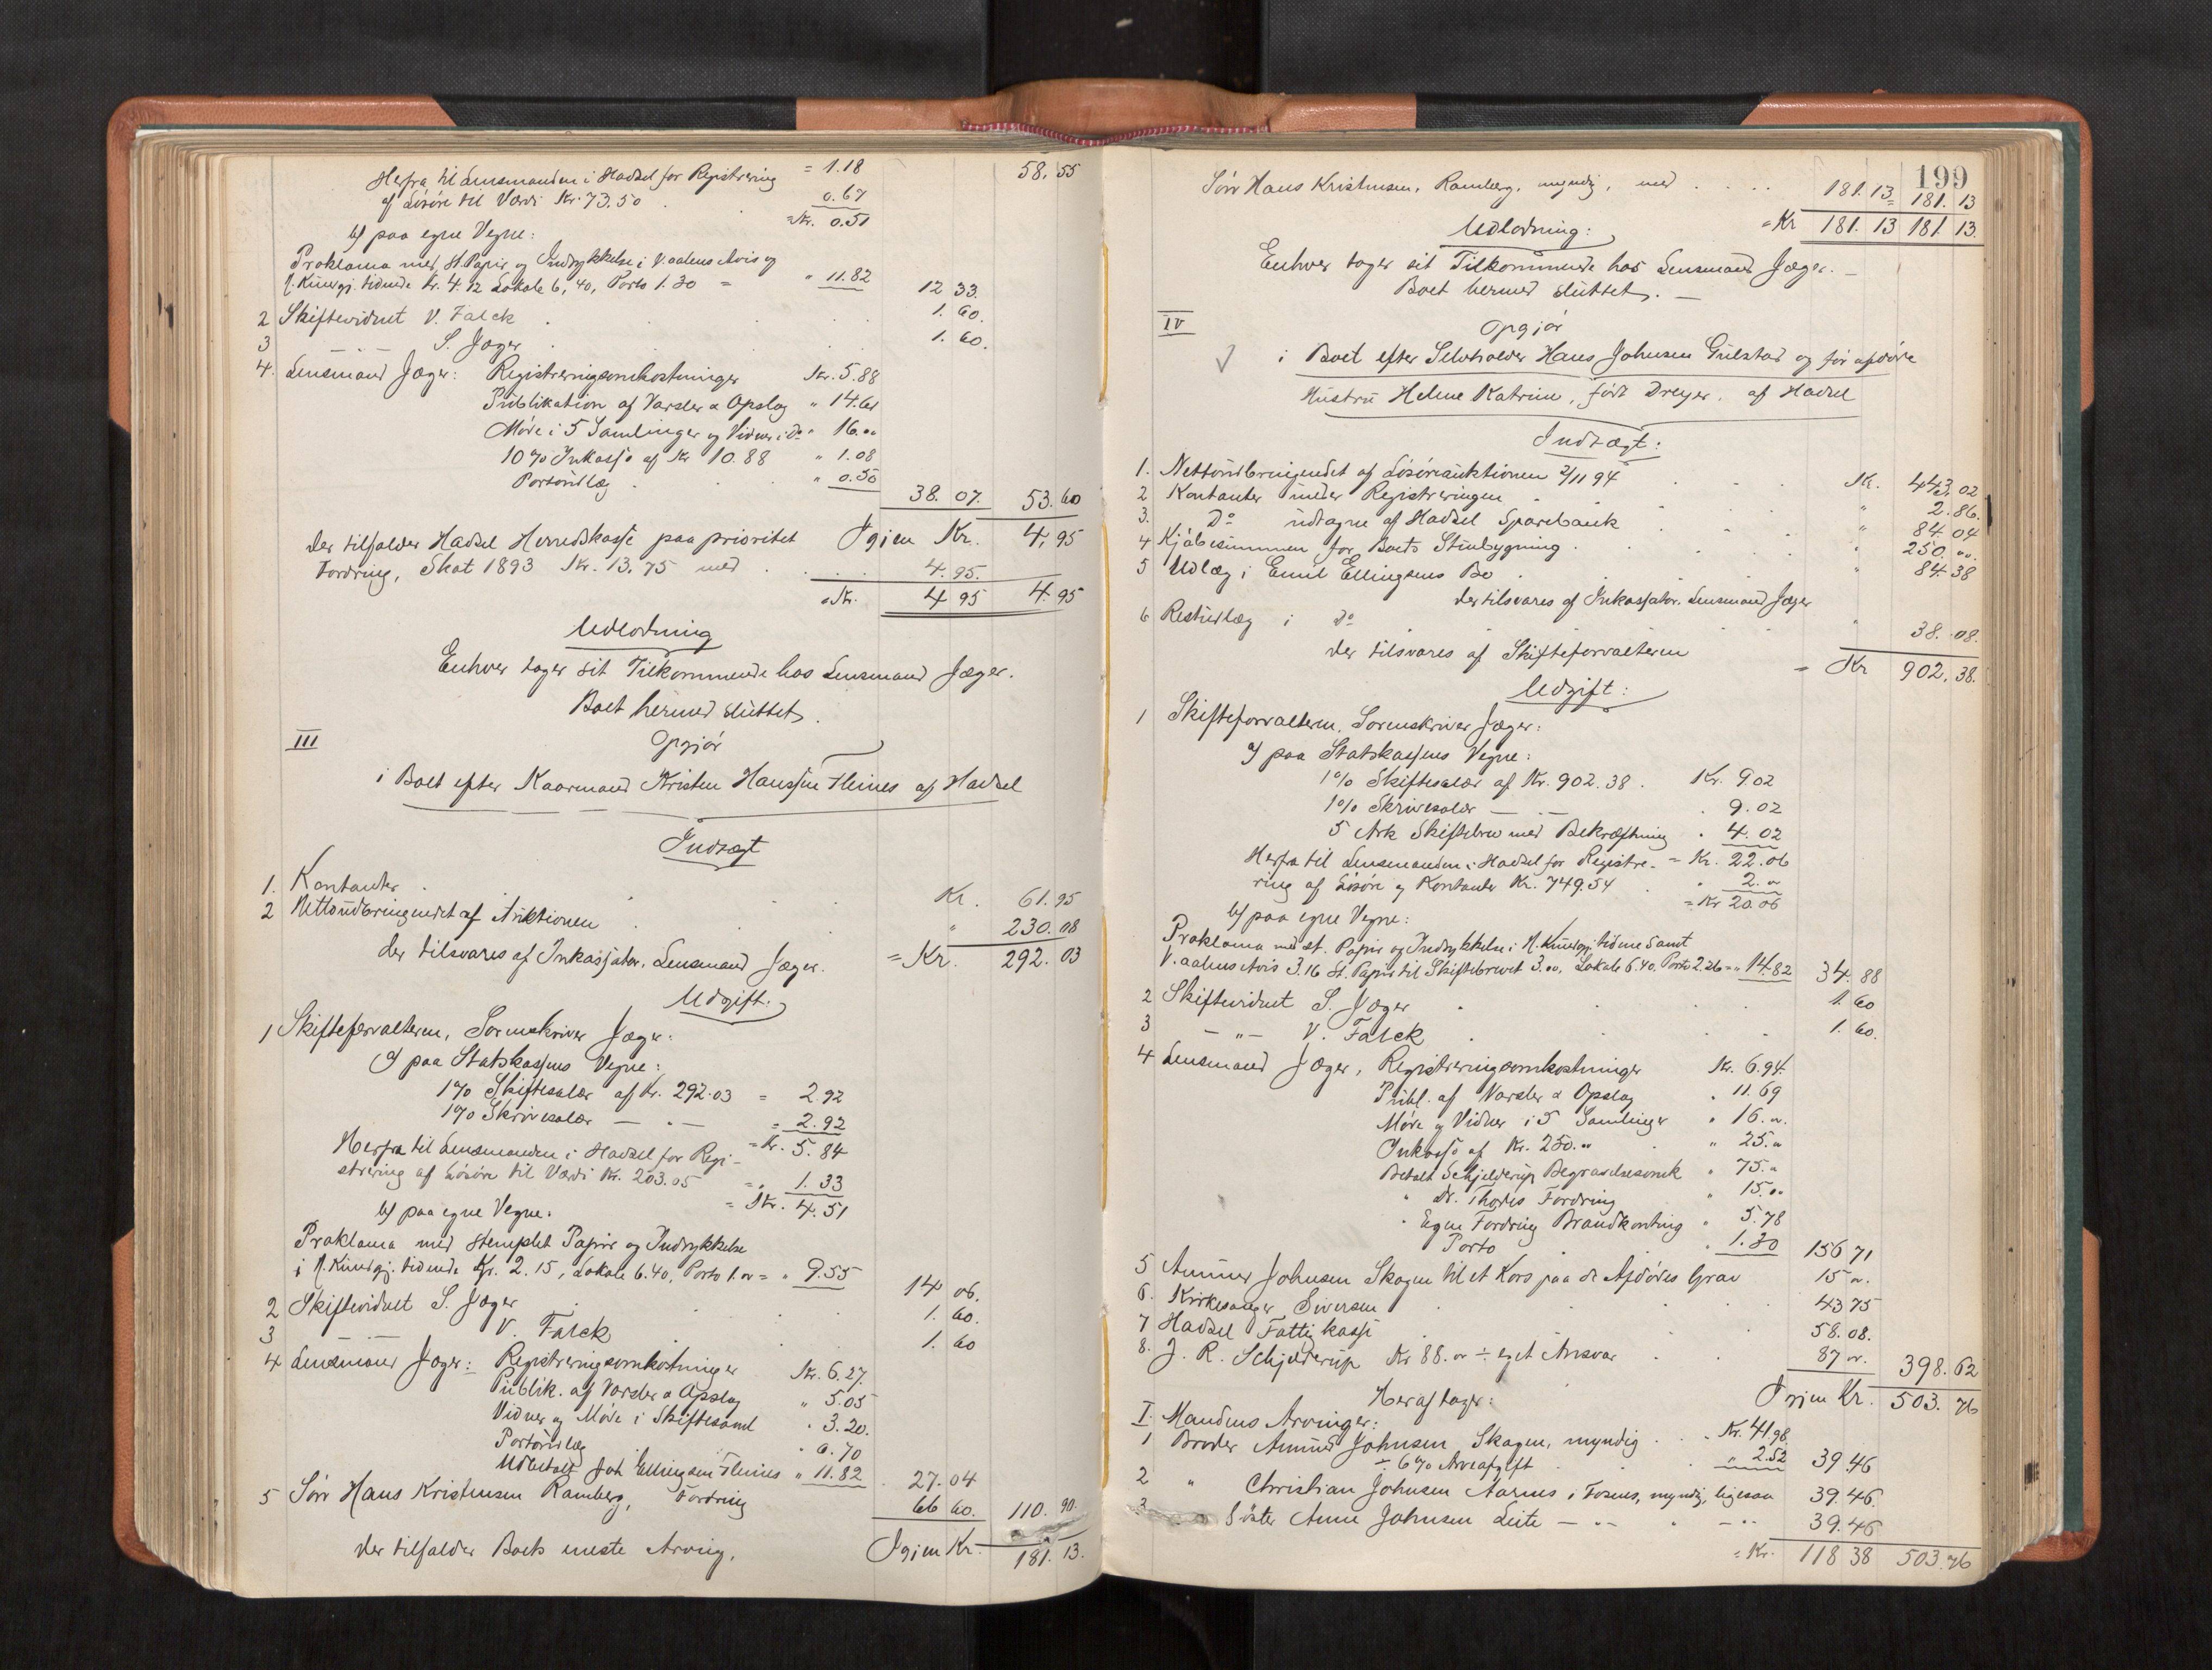 Herfra til Lensmanden i Hadsel for Registrering = 1.18 58,55
af Løsøre til Værdi Kr. 73.50 . 0.67
= Kr. 0.51
b) paa egne Vegne:
Proklama med St. Papir og Indrykkelse i V.aalens Avis og
N. Kundgj. tidende Kr. 4.12 Lokale 6,40, Porto 1.30 = " 11.82 12 33.
2 Skiftevidnet V. Falck . 1. 60.
3 — " — S. Jæger . 1. 60.
4. Lensmand Jæger: Registreringsomkostninger Kr. 5.88
Publikation af Varsler & Opslag " 14.61
Møde i 5 Samlinger og Vidner i Do " 16.00
10 % Inkasso af Kr 10.88 " 1.08
Portoudlæg . " 0.50
38. 07. 53.60
Igjen Kr. 4,95
der tilfalder Hadsel Herredskasse paa prioritet
Fordring, Skat 1893 Kr. 13.75 med . . . 4.95.
= Kr. 4 95 4.95
Udlodning
Enhver tager sit Tilkommende hos Lensmand Jæger.
Boet hermed sluttet.
III
Opgjør
i Boet efter Kaarmand Kristen Hanssen Fleines af Hadsel
Indtægt
1. Kontanter . Kr. 61.95
2 Nettoudbringendet af Auktionen " 230.08
der tilsvares af Inkassator, Lensmand Jæger. = Kr. 292. 03
Udgift.
1 Skifteforvalteren, Sorenskriver Jæger:
a) paa Statskassens Vegne:
1 % Skiftesalær af Kr. 292.03 = 2.92
1 % Skrivesalær — " — = 2.92
= Kr. 5.84
Herfra til Lensmanden i Hadsel for Regi-
strering af Løsøre til Værdi Kr. 203.05 = " 1.33
= Kr. 4.51
b) paa egne Vegne:
Proklama med stemplet Papir og Indrykkelse
i N. Kundgj. tidende Kr. 2.15, Lokale 6.40, Porto 1.00 = " 9.55 14 06.
2 Skiftevidnet S. Jæger . 1. 60.
3 — " — V. Falck 1. 60
4 Lensmand Jæger: Registreringsomkostninger Kr. 6.27.
Publik. af Varsler & Opslag " 5.05
Vidner og Møde i Skiftesaml " 3.20.
Portoudlæg " 0.70
Udbetalt Joh Ellingsen Fleines " 11.82 27.04
5 Søn Hans Kristensen Ramberg, Fordring 66 60. 110. 90.
Igjen Kr. 181. 13.
der tilfalder Boets eneste Arving,
199
Søn Hans Kristensen, Ramberg, myndig, med . . . . 181.13 = 181. 13
= Kr 181. 13 181. 13.
Udlodning:
Enhver tager sit Tilkommende hos Lensmand Jæger. —
Boet hermed sluttet. —
IV
Opgjør
i Boet efter Selveholder Hans Johnsen Gulstad og før afdøde
Hustru Helene Katrine, født Dreyer, af Hadsel
Indtægt:
1. Nettoudbringendet af Løsøreauktionen 2/11 94 . . . Kr. 443,02
2 Kontanter under Registreringen " 2.86.
3. Do udtagne af Hadsel Sparebank " 84.04
4 Kjøbesummen for Boets Stuebygning . " 250.00.
5 Udlæg i Emil Ellingsens Bo . " 84.38
der tilsvares af Inkassator. Lensmand Jæger
6 Restudlæg i Do " 38.08.
der tilsvares af Skifteforvalteren = Kr 902,38.
Udgift:
1 Skifteforvalteren, Sorenskriver Jæger:
a) paa Statskassens Vegne:
1 % Skiftesalær af Kr. 902.38 . Kr. 9.02
1 % Skrivesalær — " — . 9.02
5 Ark Skiftebrev med Bekræftning . 4.02
= Kr. 22.06
Herfra til Lensmanden i Hadsel for Registre-
ring af Løsøre og Kontanter Kr. 749.54 . " 2. "
= Kr 20.06
b) paa egne Vegne:
Proklama med st. Papir og Indrykkelse i N. Kundgj. tidene samt
V.aalens Avis 3.16 St. Papir til Skiftebrevet 3.00, Lokale 6.40, Porto 2.26 = " 14.82 34. 88
2 Skiftevidnet S. Jæger . 1. 60
3 — " — V. Falck 1. 60.
4 Lensmand Jæger, Registreringsomkostninger Kr. 6.94.
Publ. af Varsler & Opslag " 11.69
Møde og Vidner i 5 Samlinger " 16.00.
Inkasso af Kr. 250.00 " 25."
Betalt Schjelderup Begravelsesomk " 75."
" Dr. Thodes Fordring " 15.00
" Egen Fordring Brandkonting " 5.78
Porto . 1.30 156 71
5 Ammer Johnsen Skagen til et Kors paa de Afdødes Grav 15 00.
6. Kirkesanger Siversen 43 75
7 Hadsel Fattigkasse 58.08.
8. J. R. Schjelderup Kr 88.00 ÷ eget Ansvar 87 00. 398.62
Igjen Kr. 503.76
Heraf tager:
I. Mandens Arvinger:
1 Broder Ammer Johnsen Skagen, myndig . . Kr. 41.98.
÷ 6 % Arveafgift " 2.52 39.46
2 " Christian Johnsen Aarnes i Fosnes, myndig, ligesaa 39.46.
3 Søster Anne Johnsen Leite — " — " — " — 39.46
= Kr. 118 38 503.76